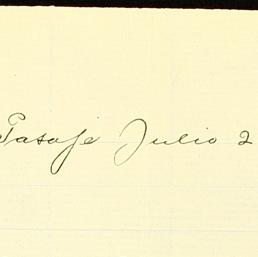 Pasaje Julio 2